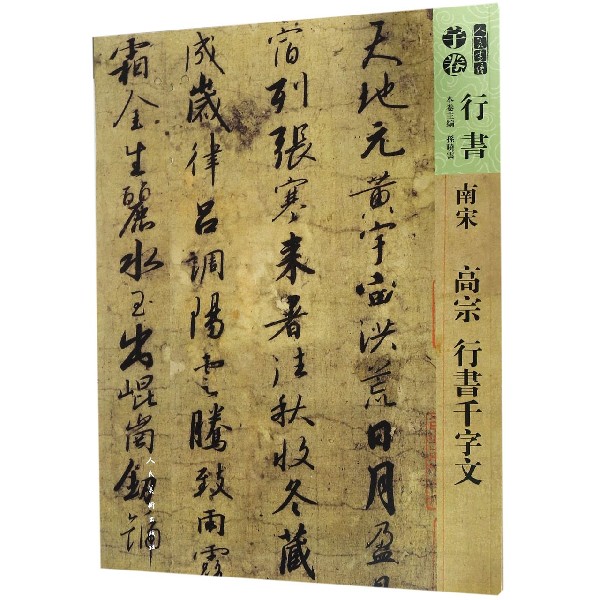 人美書譜
宇卷
行書
本卷主編 孫曉雲
南宋 高宗 行書千字文
天地元黄宇宙洪荒日月盈
宿列張寒来暑往秋收冬藏
成歲律呂調陽雲騰致雨露
霜金生麗水玉出崐崗劒
人民美術出版社